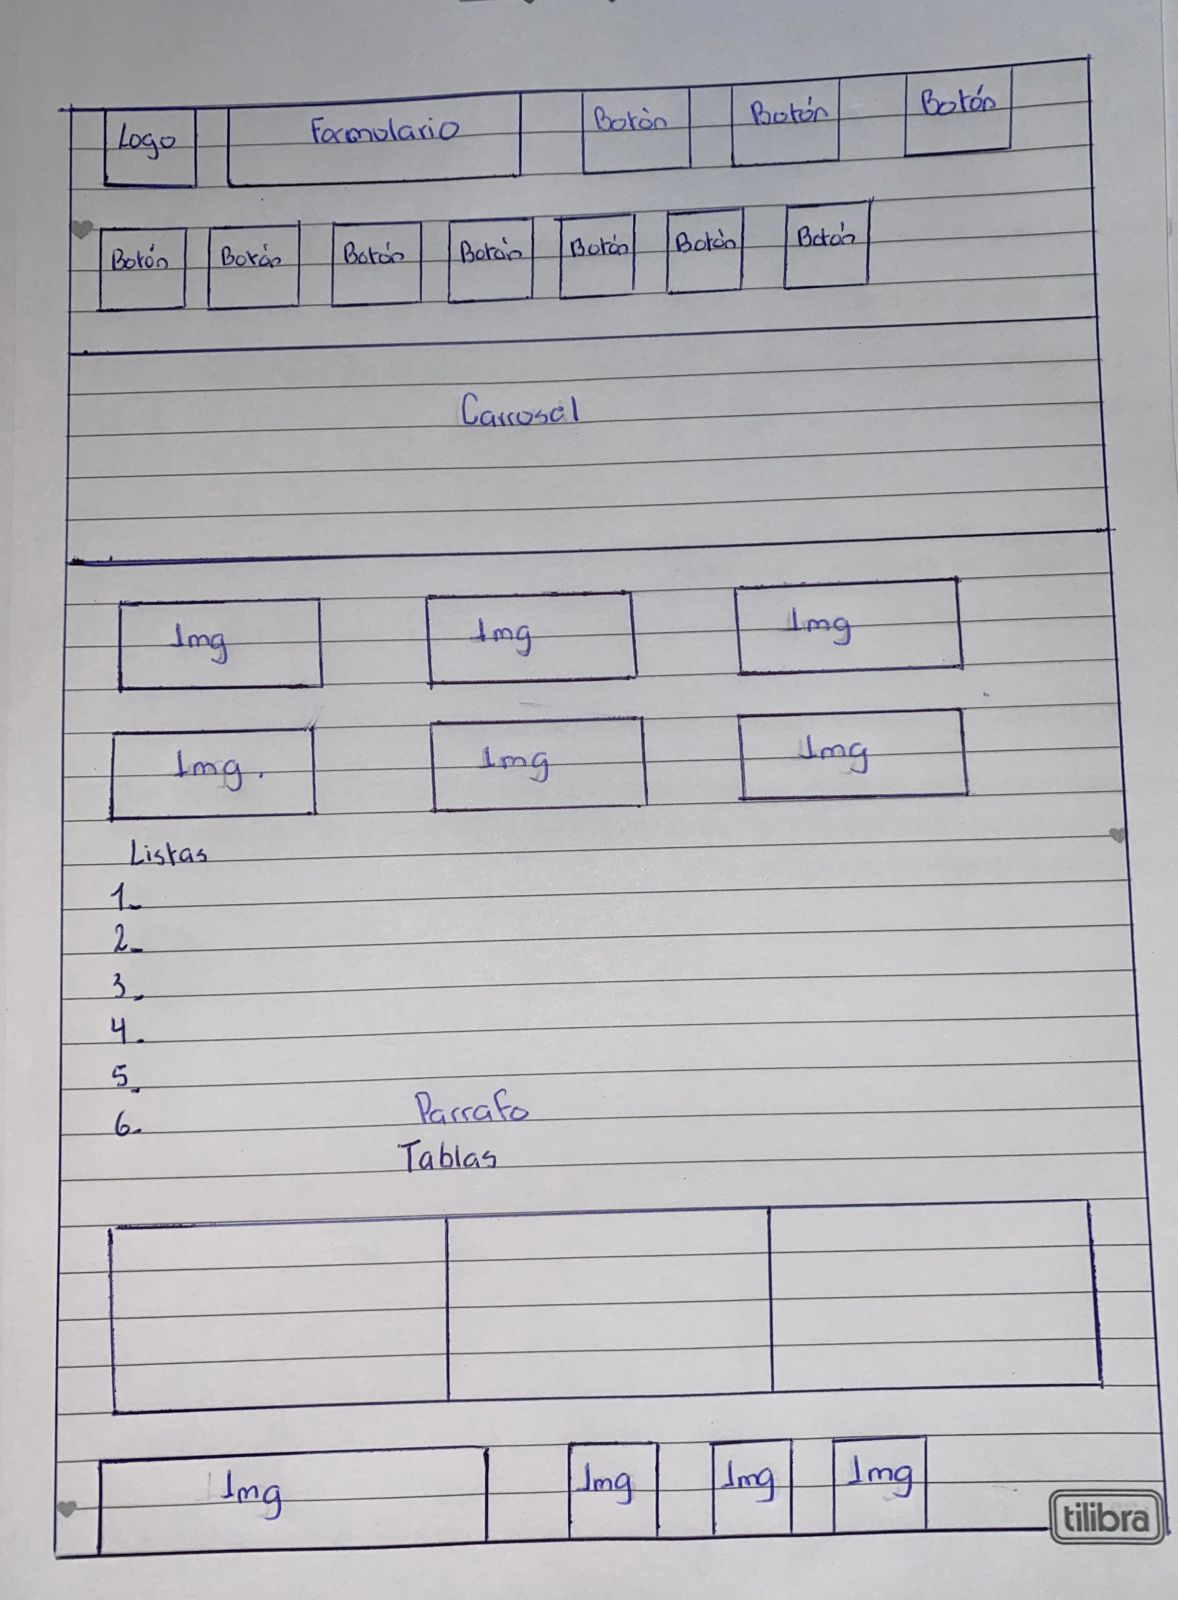 Logo Formulario Botón Botón Botón
Botón Botón Botón Botón Botón Botón Botón
Carrosel
Img Img Img
Img. Img Img
Listas
1.
2.
3.
4.
5.
6.
Parrafo
Tablas
Img Img Img Img
tilibra